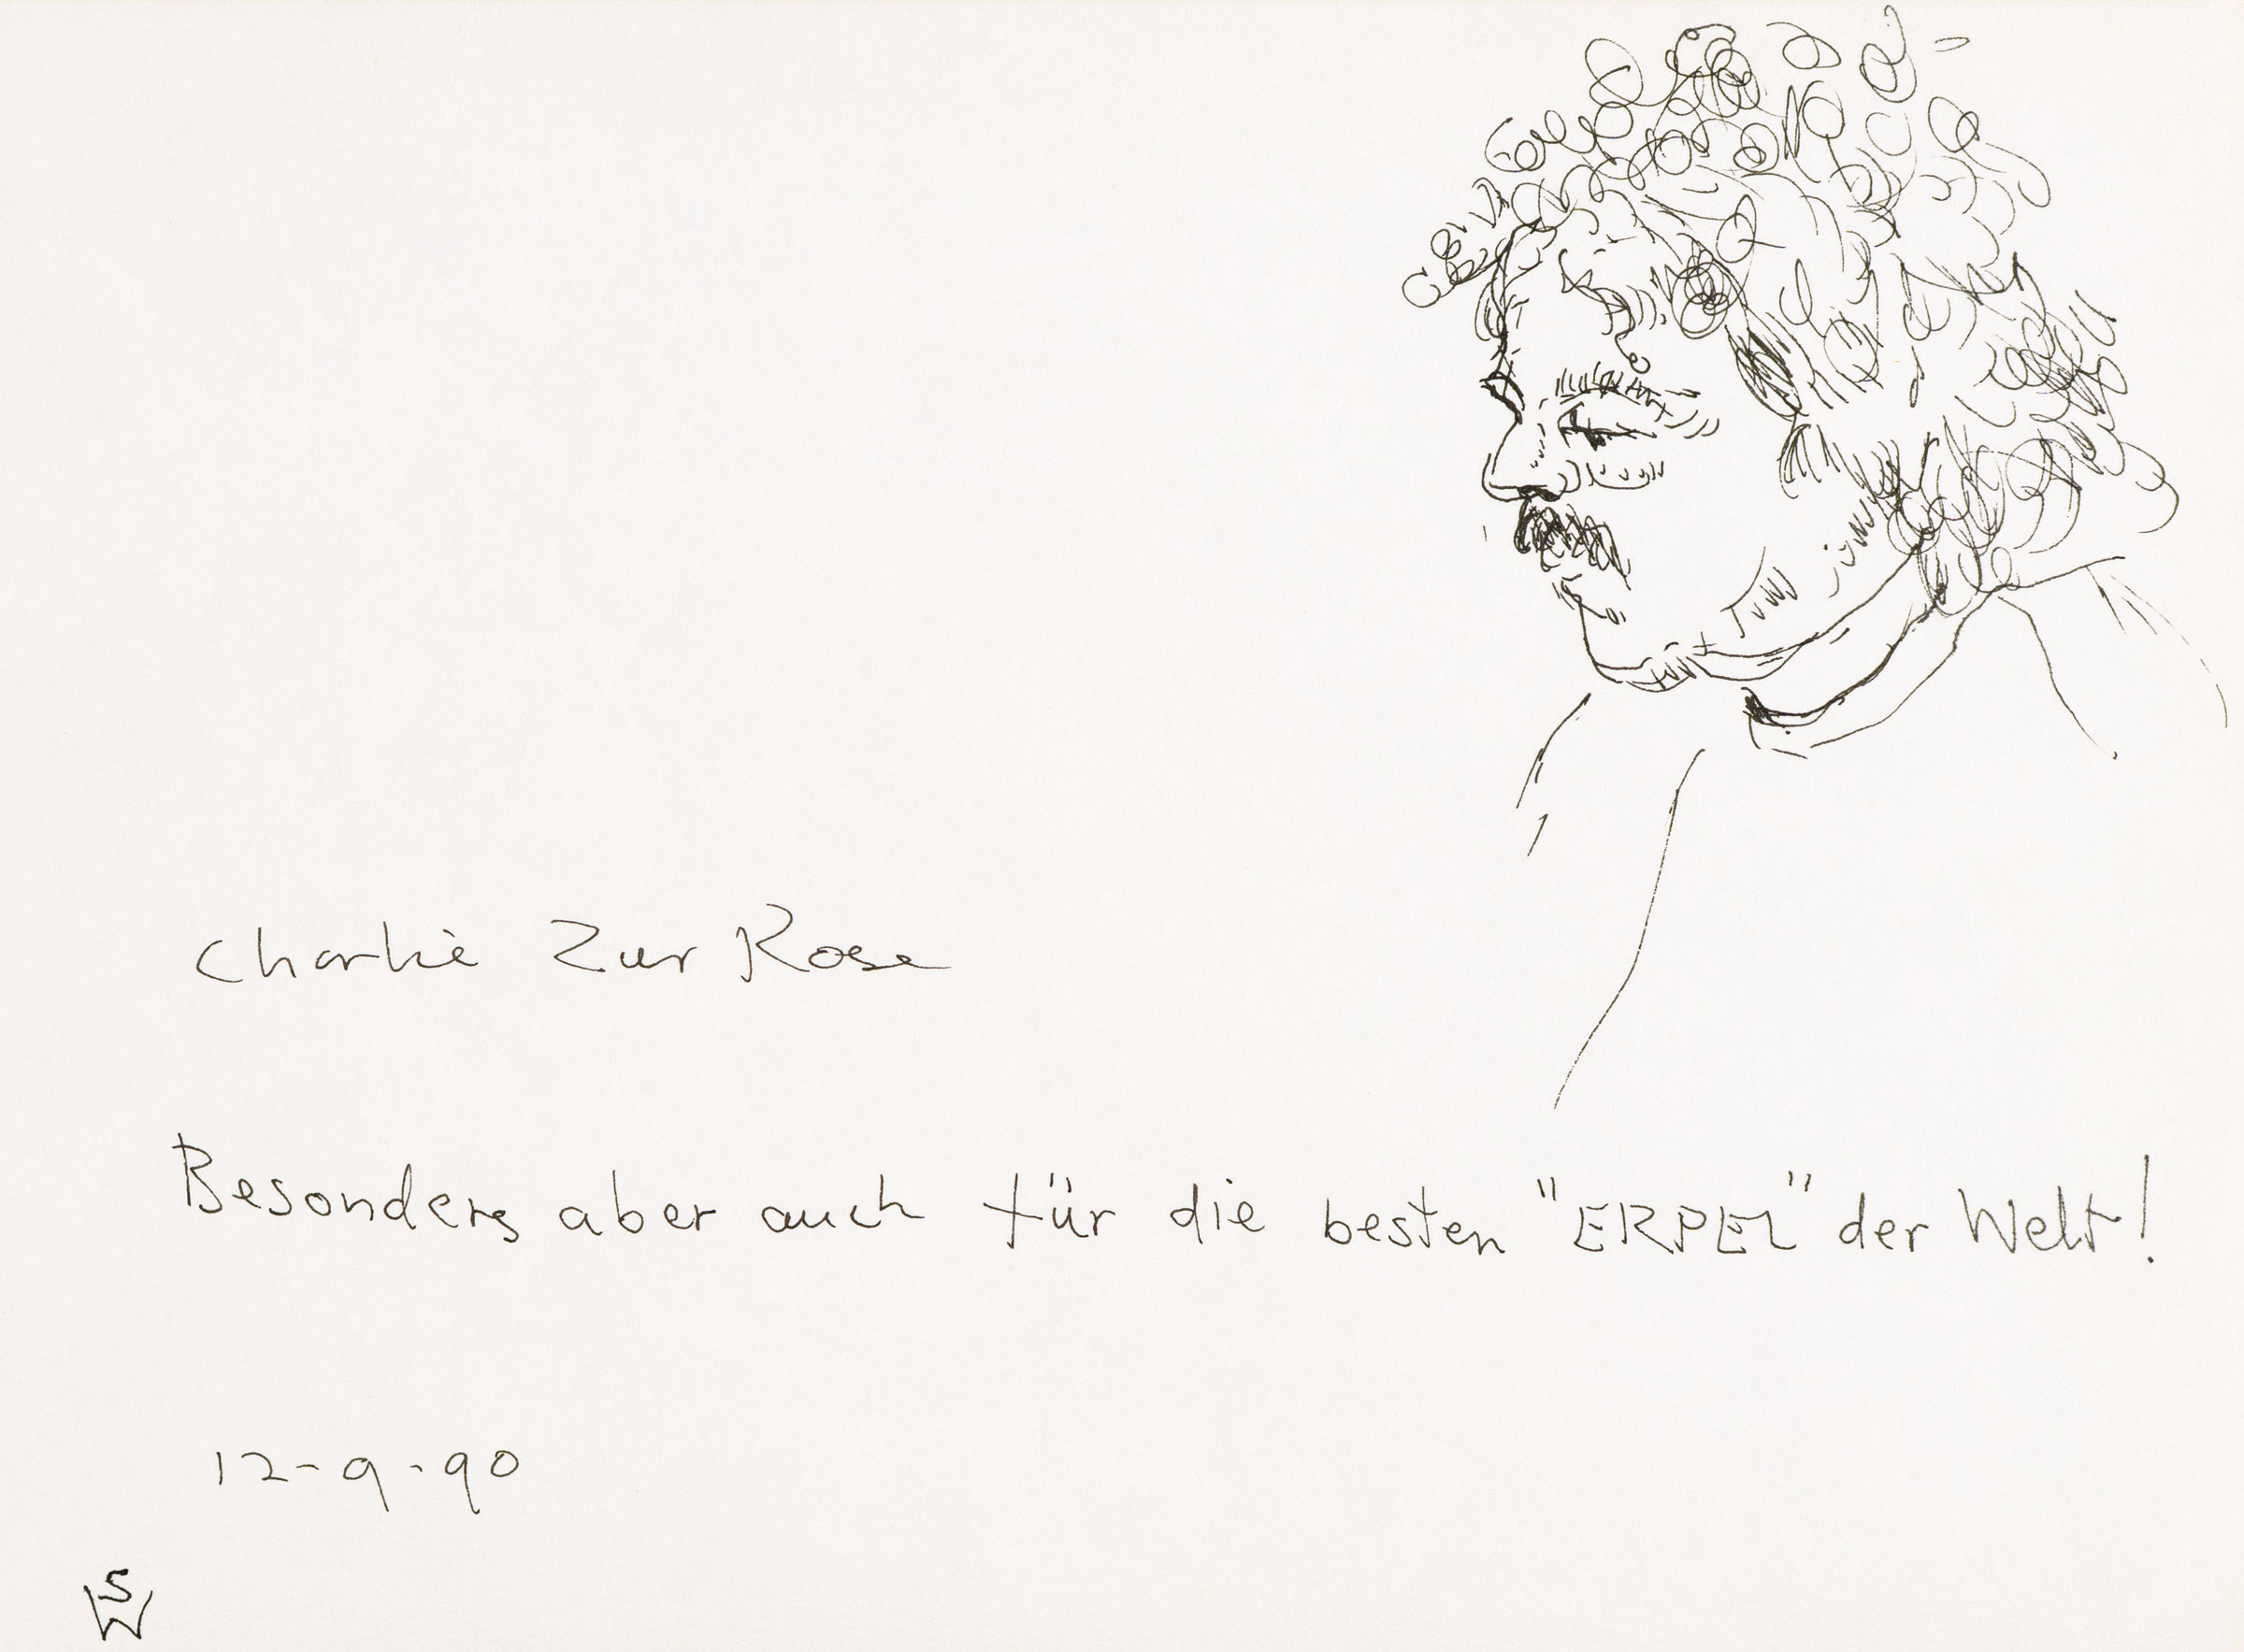 Charlie Zur Rose
Besonders aber auch für die besten "ERPEL" der Welt!
12-9-90
SW